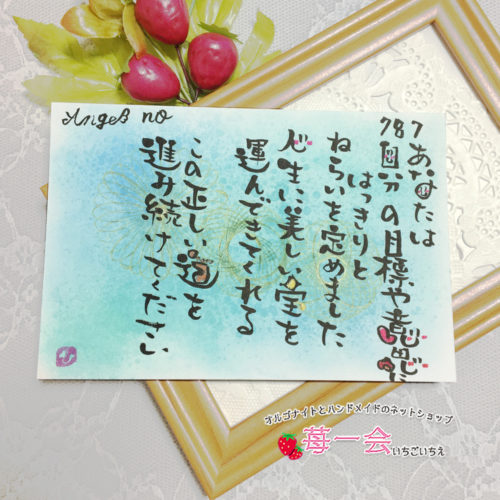 Angel no
787
あなたは
自分の目標や意思に
はっきりと
ねらいを定めました
人生に美しい宝を
運んできてくれる
この正しい道を
進み続けてください
オルゴナイトとハンドメイドのネットショップ
苺一会 いちごいちえ